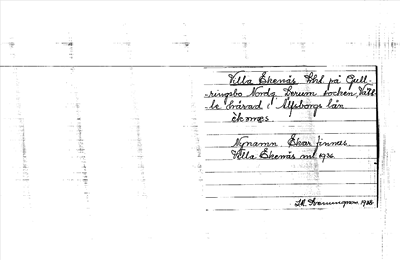 Villa Ekenäs lht på Gull-
ringsbo Nordg. Lerum socken, Vätt-
le härad i Älfsborgs län
ek næs.
Nynamn. Ekar finnas.
Villa Ekenäs nul 1926.
1928